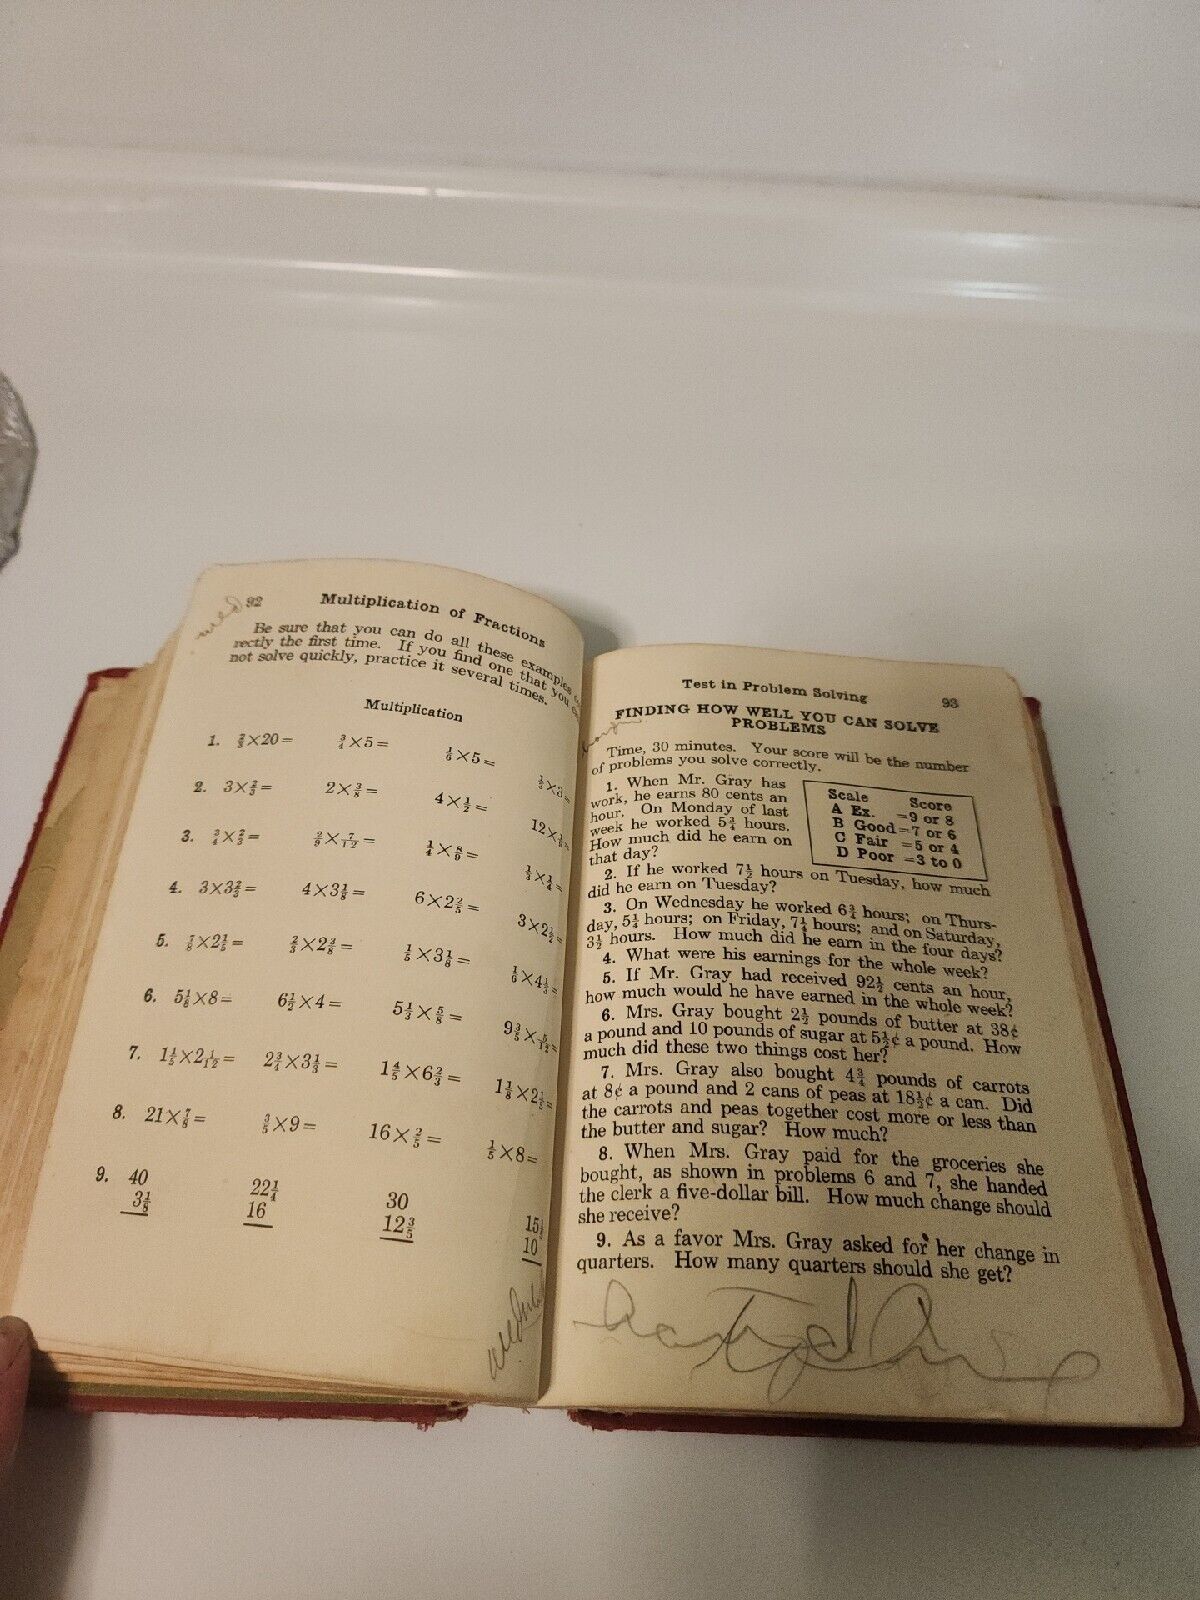 92
Multiplication of Fractions
Be sure that you can do all these examples
rectly the first time. If you find one that you
not solve quickly, practice it several times.
Multiplication
1. ×20= ¾×5= ×5=
2. 3×⅔= 2×⅜= 4×½=
3. ¾×⅔= 2/9×7/12= ¼×8/9=
4. 3×3⅔= 4×3⅛= 6×2⅖
5. ⅔×2⅜= ⅕×3⅛=
6. 5⅙×8= 6½×4= 5⅓×⅝=
7. 1⅕×2 1/12= 2¾×3⅓= 1⅘×6⅔=
8. 21× ×9= 16×⅖= ⅕×8=
9. 40 22¼ 30 15
16 12⅗ 10
Test in Problem Solving
93
FINDING HOW WELL YOU CAN SOLVE
PROBLEMS
Time, 30 minutes. Your score will be the number
of problems you solve correctly.
1. When Mr. Gray has
work, he earns 80 cents an
hour. On Monday of last
week he worked 5¾ hours.
How much did he earn on
that day?
Scale Score
A Ex. =9 or 8
B Good=7 or 6
C Fair =5 or 4
D Poor =3 to 0
2. If he worked 7½ hours on Tuesday, how much
did he earn on Tuesday?
3. On Wednesday he worked 6¾ hours; on Thurs-
day, 5¼ hours; on Friday, 7¼ hours; and on Saturday,
3½ hours. How much did he earn in the four days?
4. What were his earnings for the whole week?
5. If Mr. Gray had received 92½ cents an hour,
how much would he have earned in the whole week?
6. Mrs. Gray bought 2½ pounds of butter at 38¢
a pound and 10 pounds of sugar at 5½¢ a pound. How
much did these two things cost her?
7. Mrs. Gray also bought 4¾ pounds of carrots
at 8¢ a pound and 2 cans of peas at 18½¢ a can. Did
the carrots and peas together cost more or less than
the butter and sugar? How much?
8. When Mrs. Gray paid for the groceries she
bought, as shown in problems 6 and 7, she handed
the clerk a five-dollar bill. How much change should
she receive?
9. As a favor Mrs. Gray asked for her change in
quarters. How many quarters should she get?